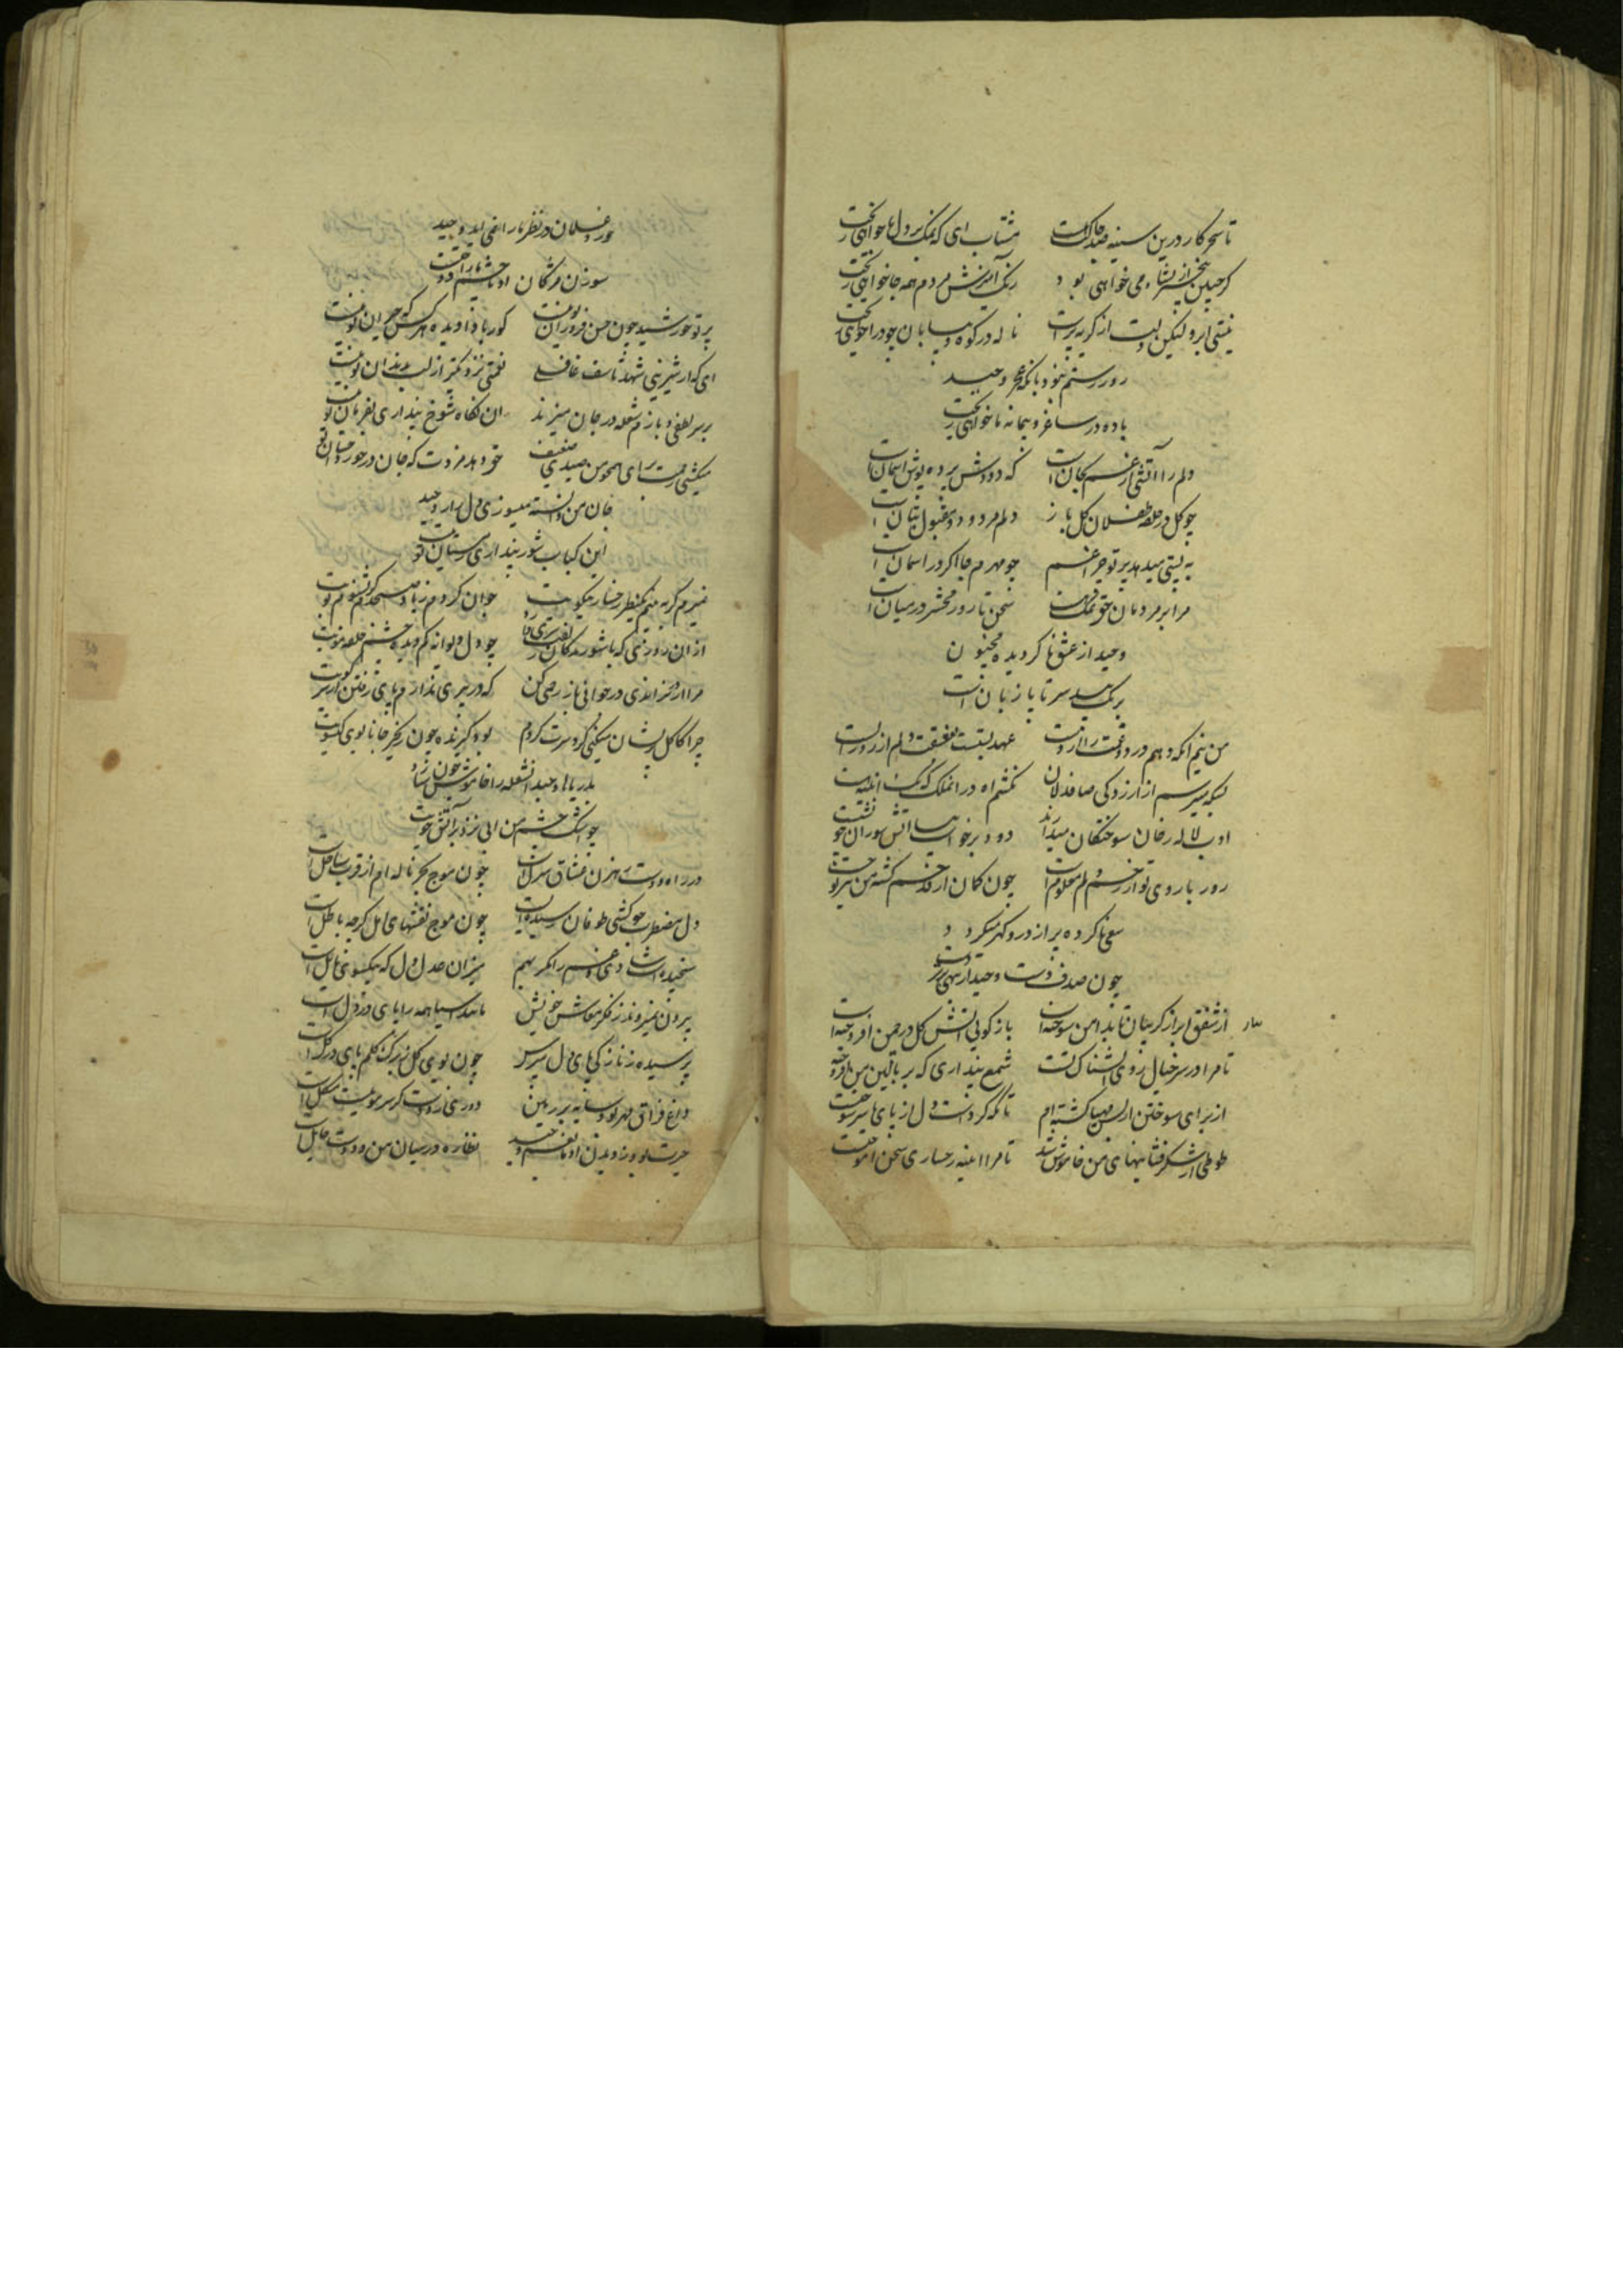 تا سحر کار درین سینه صد چاکت هست مشتاب ای که نمک بر دلها خواهی ریخت
گر چنین بیخبر از نشاء می خواهی بود رنگ آمیزش مردم همه جا خواهی ریخت
نیستی ابر و لیکن دلت از گریه پرست ناله در کوه و بیابان چو درا خواهی ریخت
روز رستم نبود بانکه عجز وحید
باده در ساغر و پیمانه ما خواهی ریخت
دلم را آتشی از غم بجان است که دودش پرده پوش آسمان است
چو گل در حلقه طفلان گل باز دلم مردود و مقبول بتان است
به پستی میدهد پرتو چراغم چو مهرم جا اگر در آسمان است
مرا بر مردمان حق نمک هست سخن تا روز محشر در میان است
وحید از عشق ناگردیده مجنون
برنگ بید سر تا پا زبان است
من نیم آنکه دهم درد و غمت را از دست عهد بستست دلم از روز الست
بسکه میترسم از آزردگی صافدلان نکشم آه در آن ملک که یک آئینه هست
ادب لاله رخان سوختگان میدانند دود برخاست ز جا آتش سوزان چو نشست
روز با روی تو از زخم دلم معلوم است چون کمان از قد خم گشته من تیر تو جست
سعی ناکرده پر از در و گهر میگردد
چون صدف دست وحید ار تهی برد
از شفق ابر از گریبان تا بدامن سوخته است باز گویی آتش گل در چمن افروخته است
تا مرا در سر خیال روی آتشناک تست شمع پنداری که بر بالین من افروخته
از برای سوختن از بس مهیا گشته ام تا نگه کردست دل از پای تا سر سوخته است
طوطی از شکرفشانیهای من خاموش شد تا مرا آئینه رخساری سخن آموخته است
حور و غلمان در نظر ما را نمی آید وحید
سوزن مژگان او تا چشم ما را دوخته است
پرتو خورشید چون حسن فروزان تو نیست کور بادا دیده هر کس که حیران تو نیست
ای که از شیرینی شهد تأسف غافلی نعمتی نزدیکتر از لب بدندان تو نیست
بر سر لطفی و بازم شعله در جان میزند آن نگاه شوخ پنداری بفرمان تو نیست
میکشی زحمت برای همچو من صیدی ضعیف خود بده مزدت که جان در خورد احسان تو نیست
جان من دانسته میسوزی دل زار وحید
این کباب شور پنداری ز مستان تو نیست
نمیرم گر به بینم یکنظر رخسار نیکویت جوان گردم ز باد صبحدم گر بشنوم بویت
از آن روزی که با شوریدگان چو دل دیوانه گردیده چشم حلقه مویت
مرا از در نراندی در جوانی باز رحمی کن که در پیری ندارم پای رفتن از سر کویت
چرا کاکل پریشان میکنی گرد سرت گردم بود گیرنده چون زنجیر جانا بوی گیسویت
بدریاها وحید آن شعله را خاموش چون سازد
چو اشک چشم من آبی نزد بر آتش خویت
در راه دوست رهزن عشاق منزل است چون موج بحر ناله ام از قرب ساحل است
دل مضطرب چو کشتی طوفان رسیده است چون موج نقشهای امل گرچه باطل است
سنجیده است شادی و غم را اگر بهم میزان عدل دل که بیکسوی مایل است
بیرون نمیروند ز فکر معاش خویش مانند آسیا همه را پای در گل است
پرسیده ز نازکی پای دل مپرس چون بوی گل ز برگ گلم پای در گل است
داغ فراق مهر بود سایه بر زمین دوری ز دوست گر سر مویست مشکل است
حیرت بود ز دیدن او مانعم وحید نظاره در میان من و دوست حایل است